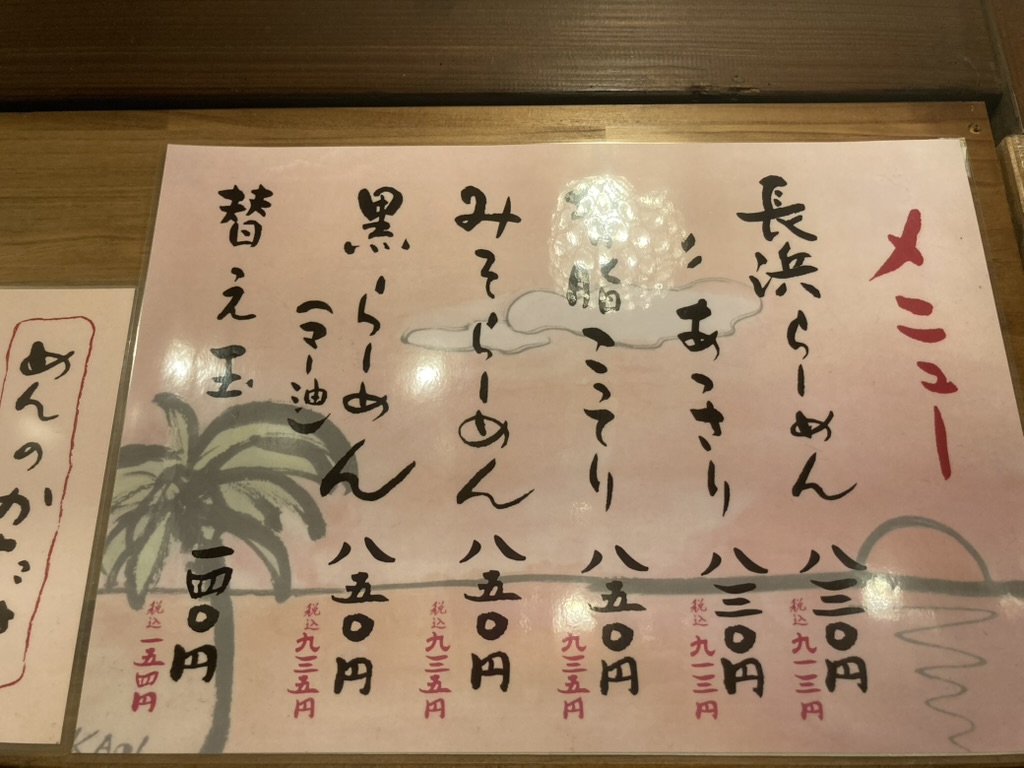 メニュー
長浜らーめん 八三〇円
税込 九一三円
〃 あっさり 八三〇円
税込 九一三円
脂こってり 八五〇円
九三五円
みそらーめん 八五〇円
税込 九三五円
黒らーめん 八五〇円
(マー油)
税込 九三五円
替え玉 一四〇円
税込 一五四円
めんのかたさ